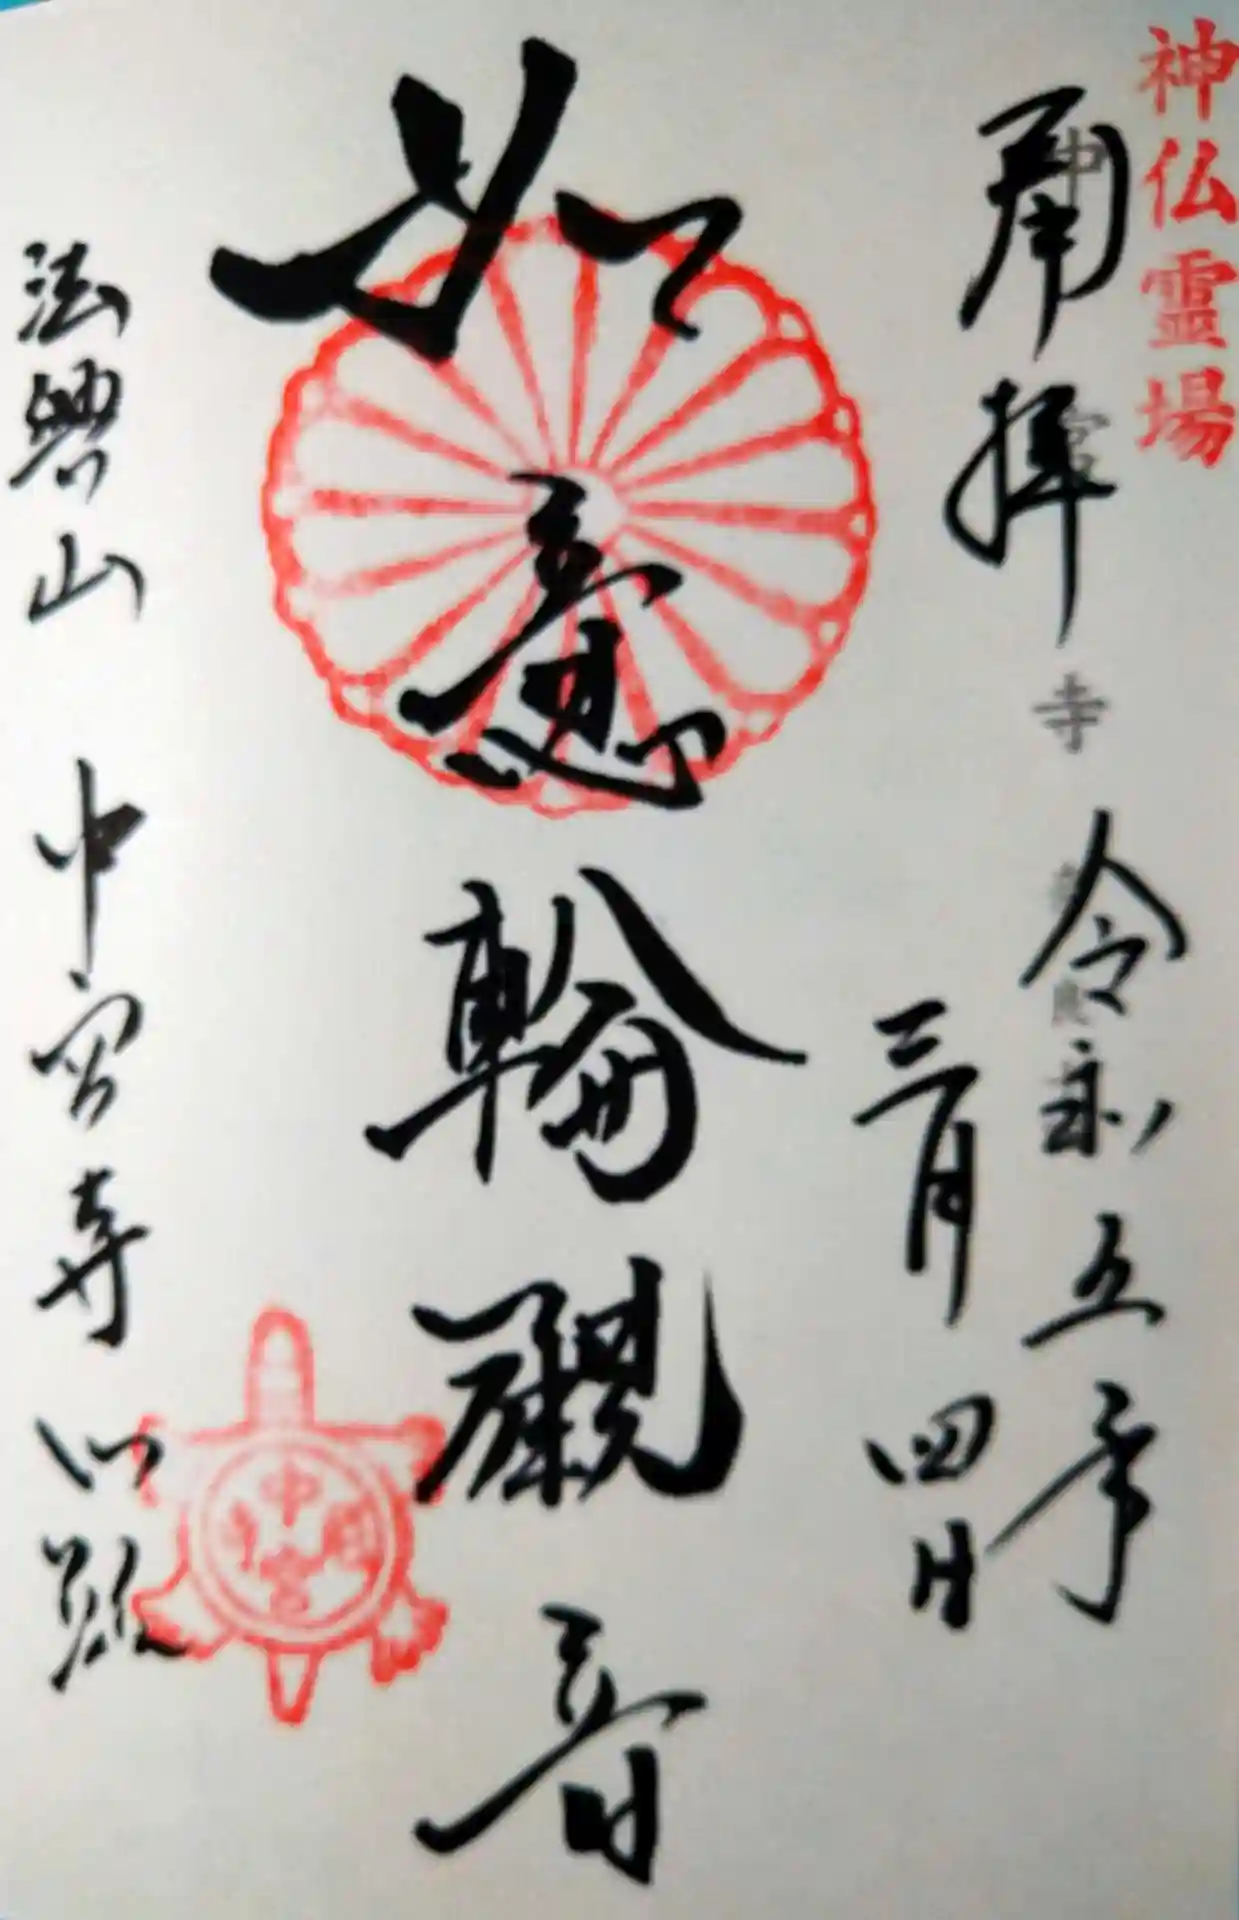 神仏霊場
奉拝
中宮寺
令和五年
三月四日
如意輪観音
法興山 中宮寺門跡
中宮